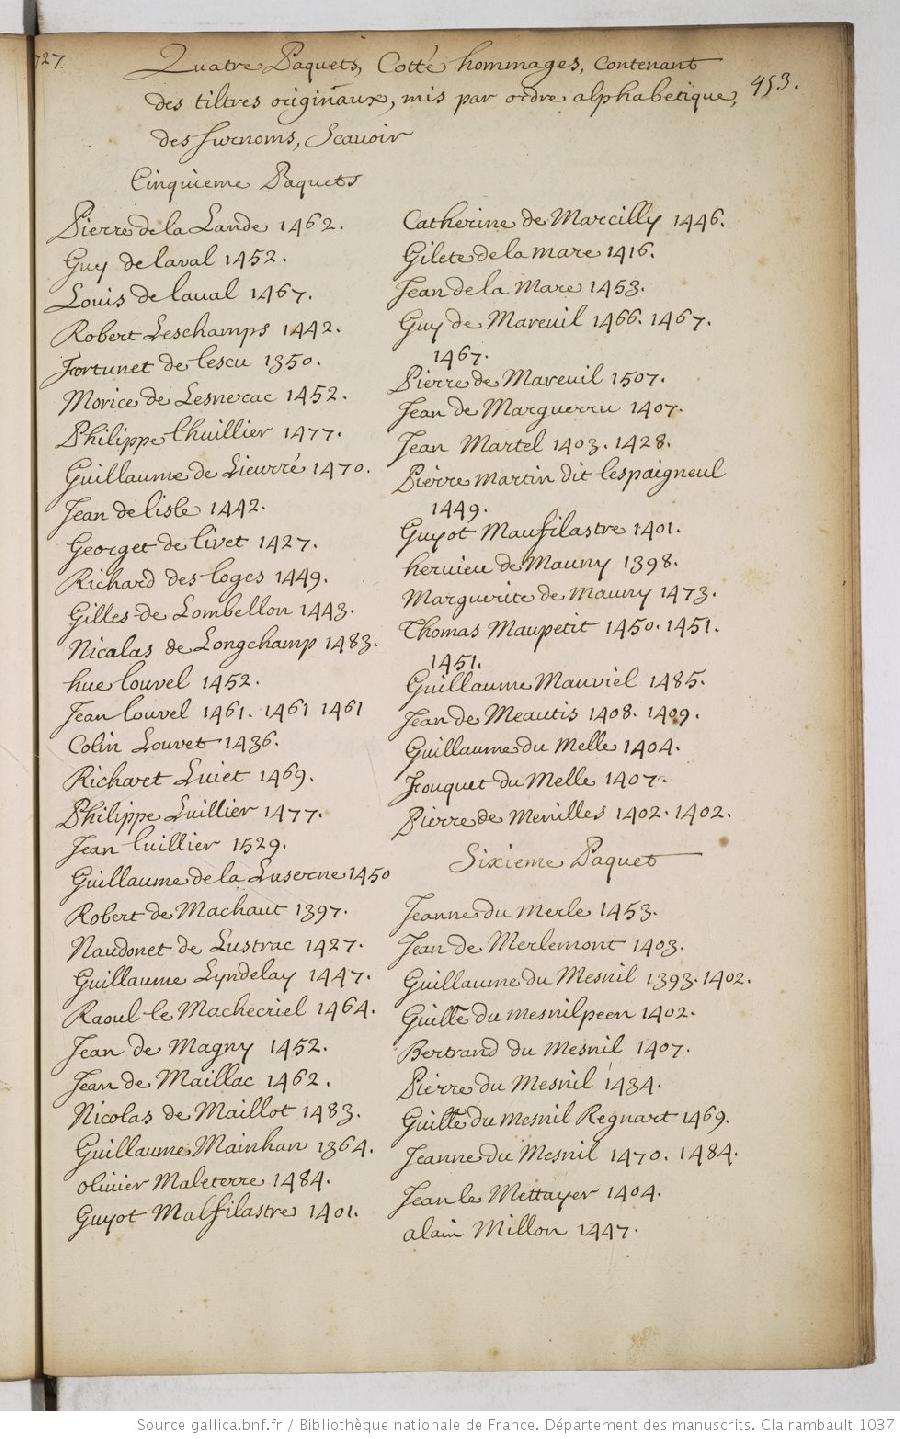 727
Quatre Paquets, Cotté hommages, contenant
953.
des tiltres originaux, mis par ordre alphabetique,
des surnoms, Scauoir
Cinquieme Paquets
Pierre de la Lande 1462.
Guy de laval 1452.
Louis de laual 1467.
Robert Leschamps 1442.
Fortunet de lescu 1350.
Morice de Lesnerac 1452.
Philippe lhuillier 1477.
Guillaume de Lieurré 1470.
Jean de lisle 1442.
Georget de livet 1427.
Richard des loges 1449.
Gilles de Lombellon 1443.
Nicalas de Longchamp 1483.
hue louvel 1452.
Jean louvel 1461. 1461 1461
Colin Louvet 1436.
Richart Luiet 1469.
Philippe Luillier 1477.
Jean luillier 1529.
Guillaume de la Luserne 1450
Robert de Machaut 1397.
Naudonet de Lustrac 1427.
Guillaume Lyndelay 1447.
Raoul le Machecriel 1464.
Jean de Magny 1452.
Jean de Maillac 1462.
Nicolas de Maillot 1483.
Guillaume Mainhan 1364.
olivier Maleterre 1484.
Guyot Malfilastre 1401.
Catherine de Marcilly 1446.
Gilete de la mare 1416.
Jean de la Mare 1453.
Guy de Mareuil 1466. 1467.
1467.
Pierre de Mareuil 1507.
Jean de Marguerru 1407.
Jean Martel 1403. 1428.
Pierre martin dit lespaigneul
1449.
Guyot Maufilastre 1401.
hervieu de Mauny 1398.
Marguerite de mauny 1473.
Thomas Maupetit 1450. 1451.
1451.
Guillaume Mauviel 1485.
Jean de Meautis 1408. 1409.
Guillaume du Melle 1404.
Fouquet du Melle 1407.
Pierre de Menilles 1402. 1402.
Sixieme Paquet
Jeanne du merle 1453.
Jean de Merlemont 1403.
Guillaume du Mesnil 1393. 1402.
Guille du mesnilpeen 1402.
Bertrand du Mesnil 1407.
Pierre du Mesnil 1434.
Guille du Mesnil Regnart 1469.
Jeanne du Mesnil 1470. 1484.
Jean le Mettayer 1404.
alain Millon 1447.
Source gallica.bnf.fr / Bibliothèque nationale de France. Département des manuscrits. Clairambault 1037